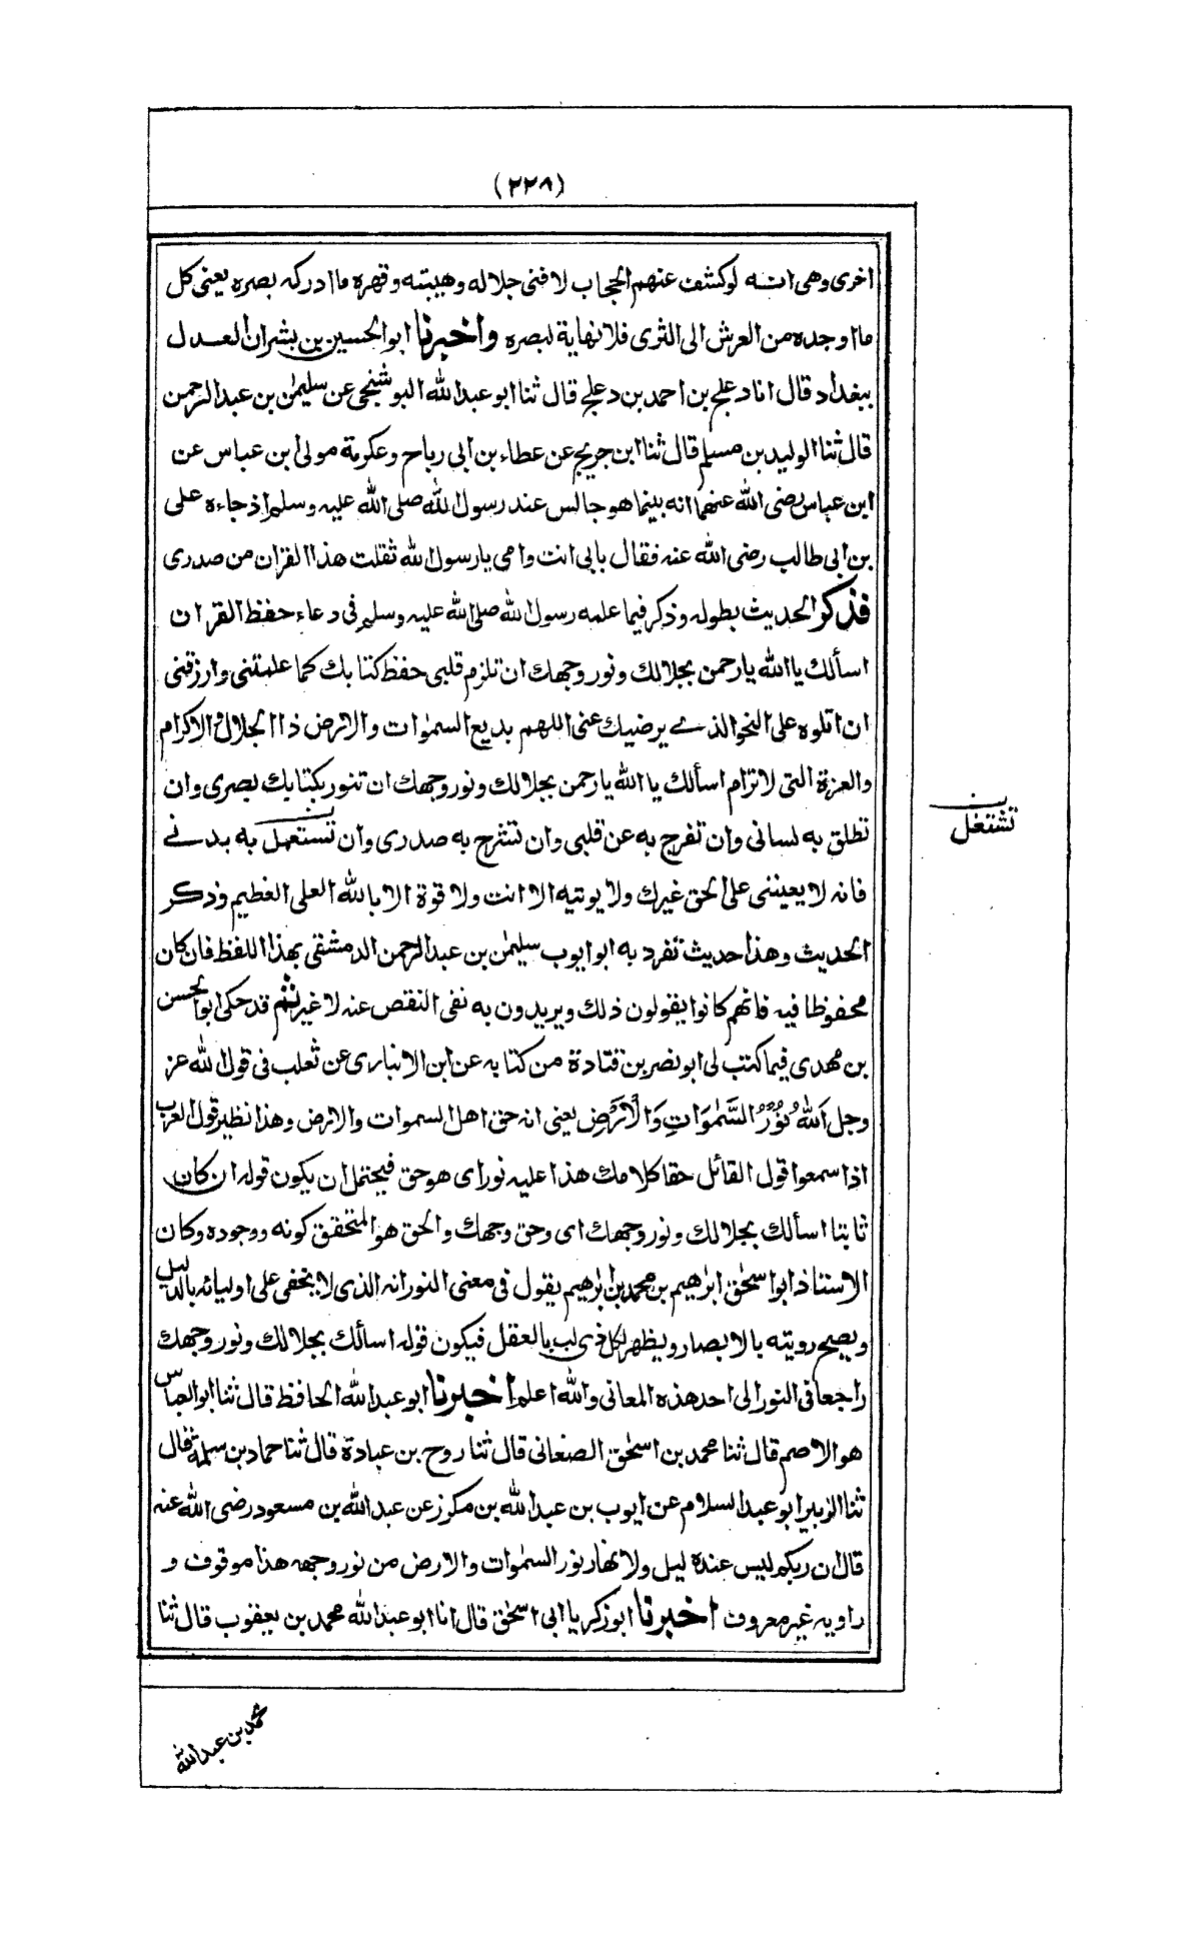 (٢٢٨)
اخرى وهى انه لو كشف عنهم الحجاب لافنى جلاله وهيبته وقهره ما ادركه بصره يعنى كل
ما اوجده من العرش الى الثرى فلا نهاية لبصره واخبرنا ابو الحسين بن بشران العدل
ببغداد قال انا دعلج بن احمد بن دعلج قال ثنا ابو عبد الله البوشنجى عن سليمٰن بن عبد الرحمن
قال ثنا الوليد بن مسلم قال ثنا ابن جريج عن عطاء بن ابى رباح وعكرمة مولى ابن عباس عن
ابن عباس رضى الله عنهما انه بينما هو جالس عند رسول الله صلى الله عليه وسلم اذ جاءه على
بن ابى طالب رضى الله عنه فقال بابى انت وامى يا رسول الله ثقلت هذا القران من صدرى
فذكر الحديث بطوله وذكر فيما علمه رسول الله صلى الله عليه وسلم فى دعاء حفظ القران
اسألك يا الله يا رحمن بجلالك ونور وجهك ان تلزم قلبى حفظ كتابك كما علمتنى وارزقنى
ان اتلوه على النحو الذے يرضيك عنى اللهم بديع السمٰوات والارض ذا الجلال والاكرام
والعزة التى لا ترام اسألك يا الله يا رحمن بجلالك ونور وجهك ان تنور بكتابك بصرى وان
تطلق به لسانى وان تفرج به عن قلبى وان تشرح به صدرى وان تستعمل به بدنے
تشتغل
فانه لا يعيننى على الحق غيرك ولا يوتيه الا انت ولا قوة الا بالله العلى العظيم وذكر
الحديث وهذا حديث تفرد به ابو ايوب سليمٰن بن عبد الرحمن الدمشقى بهذا اللفظ فان كان
محفوظا فيه فانهم كانوا يقولون ذلك ويريدون به نفى النقص عنه لا غير ثم قد حكى ابو الحسن
بن مهدى فيما كتب لى ابو نصر بن قتادة من كتابه عن ابن الانبارى عن ثعلب فى قول الله عز
وجل اَللّٰهُ نُوْرُ السَّمٰوَاتِ وَالْاَرْضِ يعنى انه حق اهل السموات والارض وهذا نظير قول العرب
اذا سمعوا قول القائل حقا كلامك هذا عليه نور اى هو حق فيحتمل ان يكون قوله ان كان
ثابتا اسألك بجلالك ونور وجهك اى وحق وجهك والحق هو المتحقق كونه ووجوده وكان
الاستاذ ابو اسحٰق ابرٰهيم بن محمد بن ابرٰهيم يقول فى معنى النور انه الذى لا يخفى على اوليائه بالدليل
ويصح رويته بالابصار ويظهر لكل ذى لب بالعقل فيكون قوله اسألك بجلالك ونور وجهك
راجعا فى النور الى احد هذه المعانى والله اعلم اخبرنا ابو عبد الله الحافظ قال ثنا ابو العباس
هو الاصم قال ثنا محمد بن اسحٰق الصغانى قال ثنا روح بن عبادة قال ثنا حماد بن سلمة قال
ثنا الزبير ابو عبد السلام عن ايوب بن عبد الله بن مكرز عن عبد الله بن مسعود رضى الله عنه
قال ان ربكم ليس عنده ليل ولا نهار نور السمٰوات والارض من نور وجهه هذا موقوف و
راويه غير معروف اخبرنا ابو زكريا ابى اسحٰق قال انا ابو عبد الله محمد بن يعقوب قال ثنا
محمد بن عبد الله